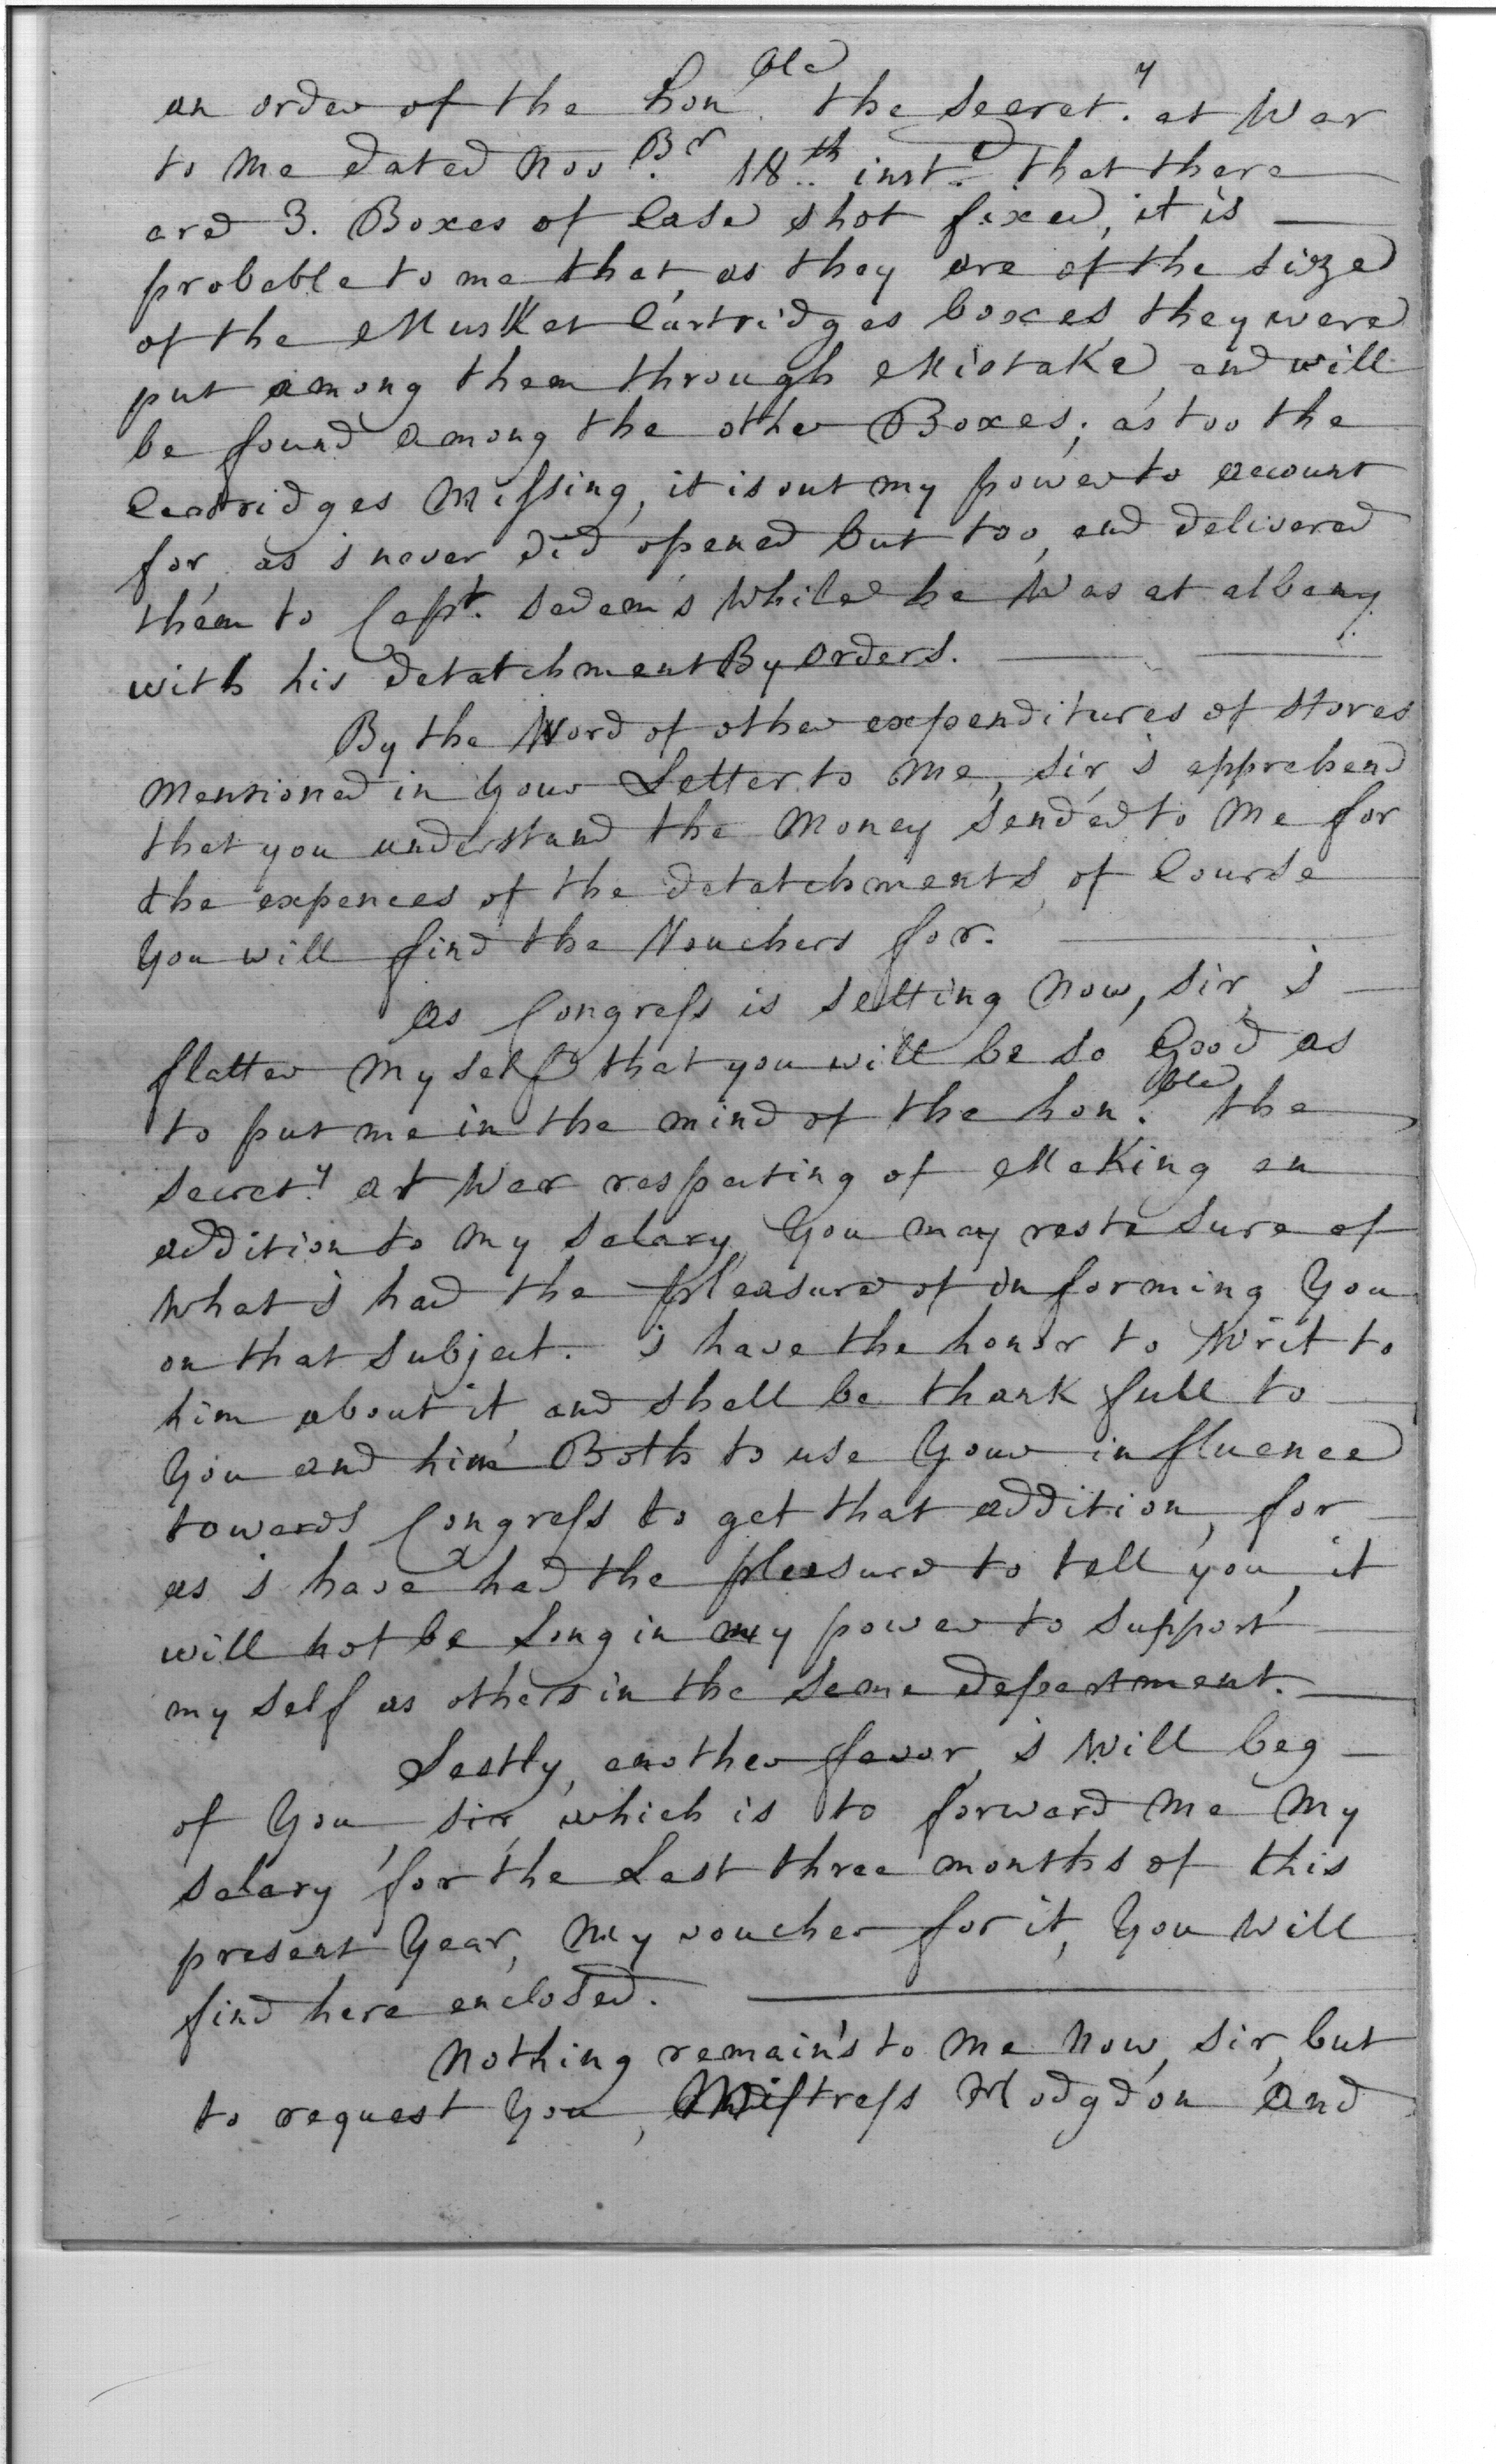 an order of the hon.ble the Secret.y at War
to me dated Nov.Br 18th inst. that there
are 3. Boxes of Case shot fixed, it is
probable to me that, as they are of the size
of the Musket Cartridges boxes, they were
put among them through Mistake, and will
be found among the other Boxes; as too the
Cartridges Missing, it is out my power to account
for, as i never did opened but too, and delivered
them to Capt. sedam's while he Was at albany
with his detatchment By orders.
By the Word of other expenditures of stores
Mentioned in Your Letter to Me, sir, i apprehend
that you understand the Money sended to Me for
the expences of the detatchments, of Course
You will find the Vouchers for.
As Congress is setting Now, sir, i
flatter My self that you will be so Good as
to put me in the mind of the hon.ble the
secret.y at War respecting of Making an
addition to my salary, You may reste sure of
What i had the pleasure of informing You
on that subject. i have the honor to Writ to
him about it, and shall be thank full to
You and him Both to use Your influence
towards Congress to get that addition, for
as i have had the pleasure to tell you, it
will not be Long in my power to support
my self as others in the same department.
Lastly, another favor, i Will beg
of You, sir, which is to forward Me My
salary for the Last three months of this
present Year, My voucher for it, You Will
find here enclosed.
Nothing remain's to Me Now, sir, but
to request You, Mistress Hodgdon and